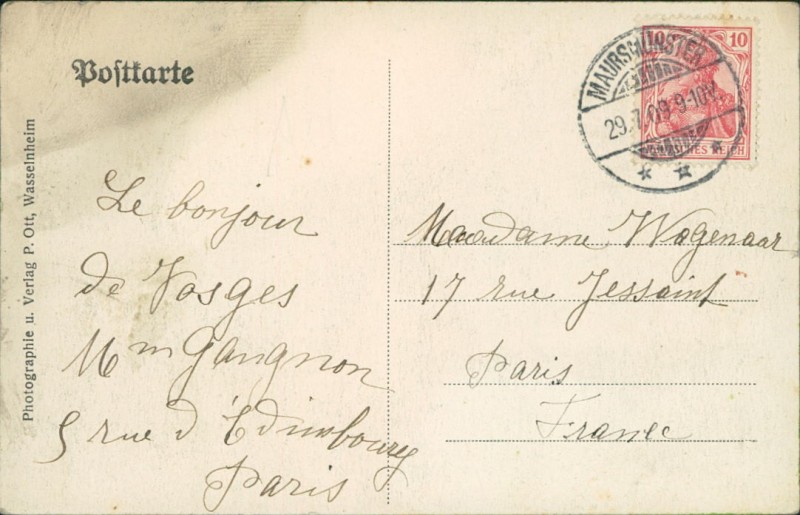 Postkarte
Photographie u. Verlag P. Ott, Wasselnheim
10
DEUTSCHES REICH
MAURSMÜNSTER
29.7.09.9-10V.
Le bonjour
de Vosges
Mm Gangnon
5 rue d'Edimbourg
Paris
Madame Wagenaar
17 rue Jessaint
Paris
France